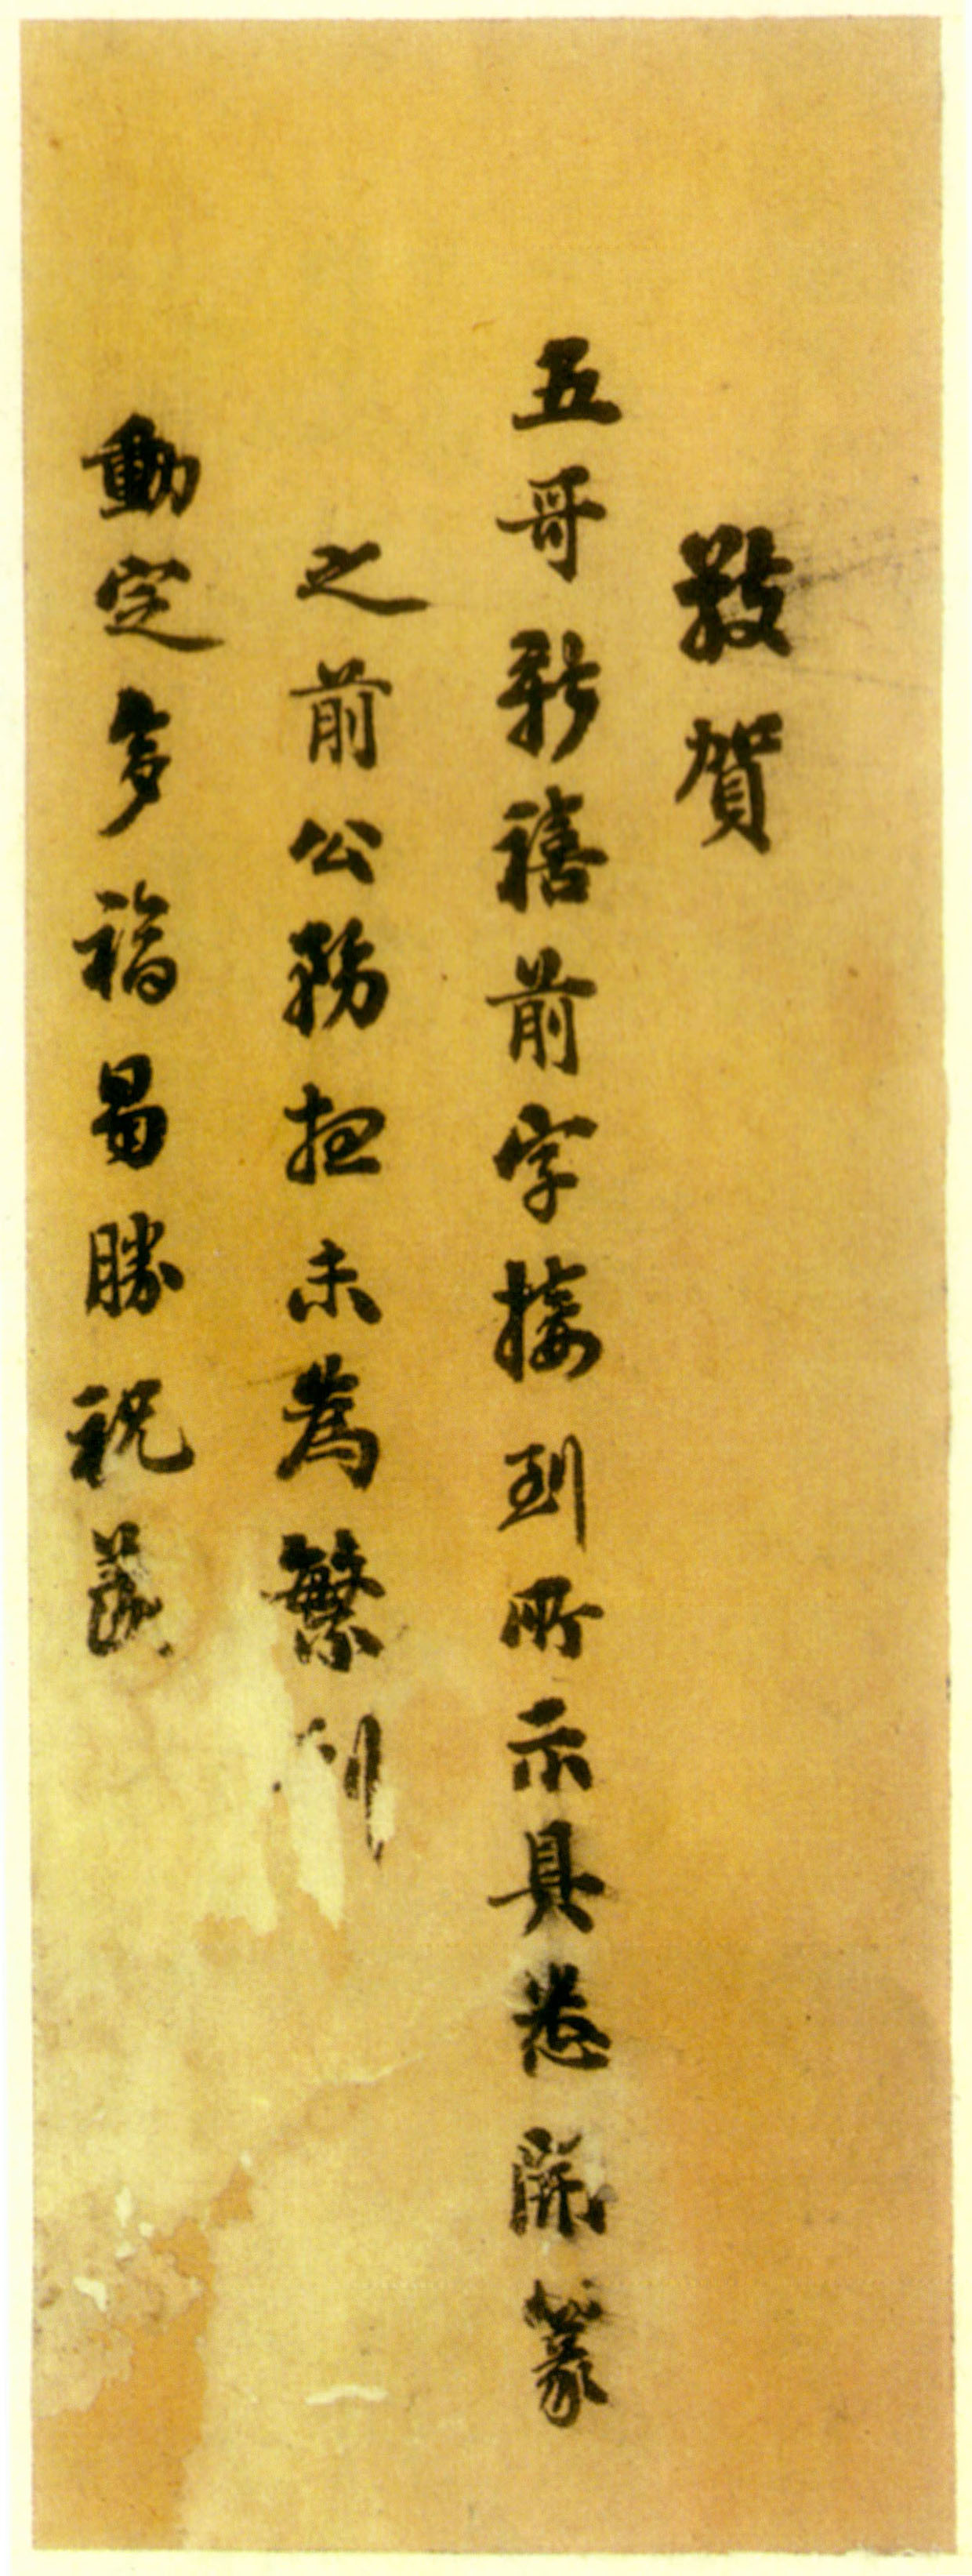 敬賀
五哥新禧前字接到所示具悉開篆
之前公務未為繁
動定多福曷勝祝羨